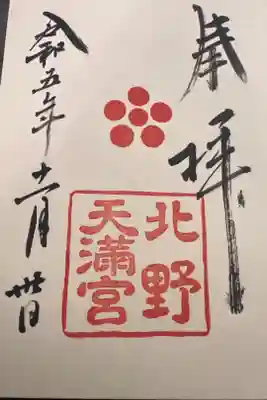 奉拝
北野
天満宮
令和五年十一月卅日